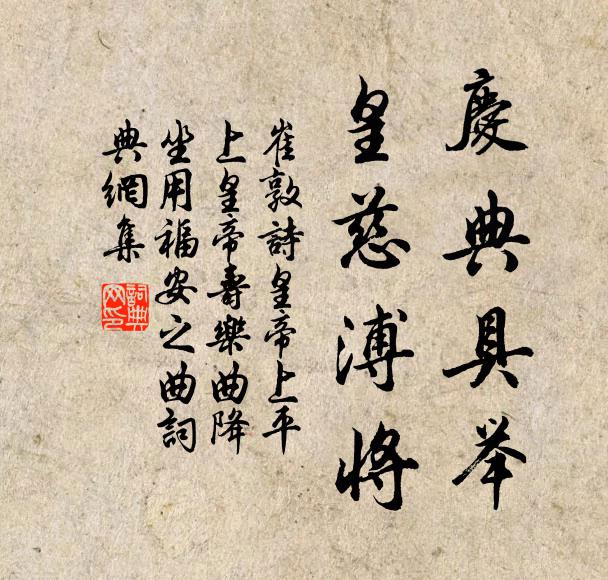 慶典具举
皇慈溥將
崔敦詩皇帝上平
上皇帝壽樂曲降
坐用福安之曲詞
典網集
詞典
网印